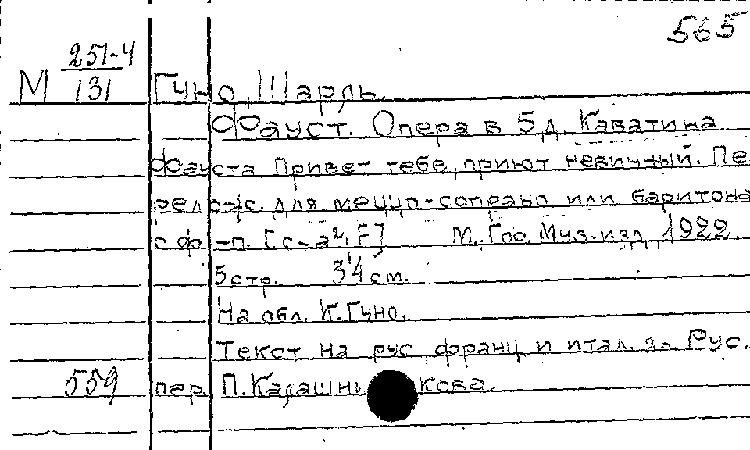 565
251-4
М 131 Гуно, Шарль.
Фауст. Опера в 5 д. Каватина
Фауста Привет тебе, приют невинный. Пе
для меццо-сопрано или баритона
с ф.-п. М., Гос. Муз. изд., 1922
5 стр. 34 см.
На обл. К. Гуно.
Текст на рус. франц. и итал. яз. Рус.
559 пер. П. Калашникова.